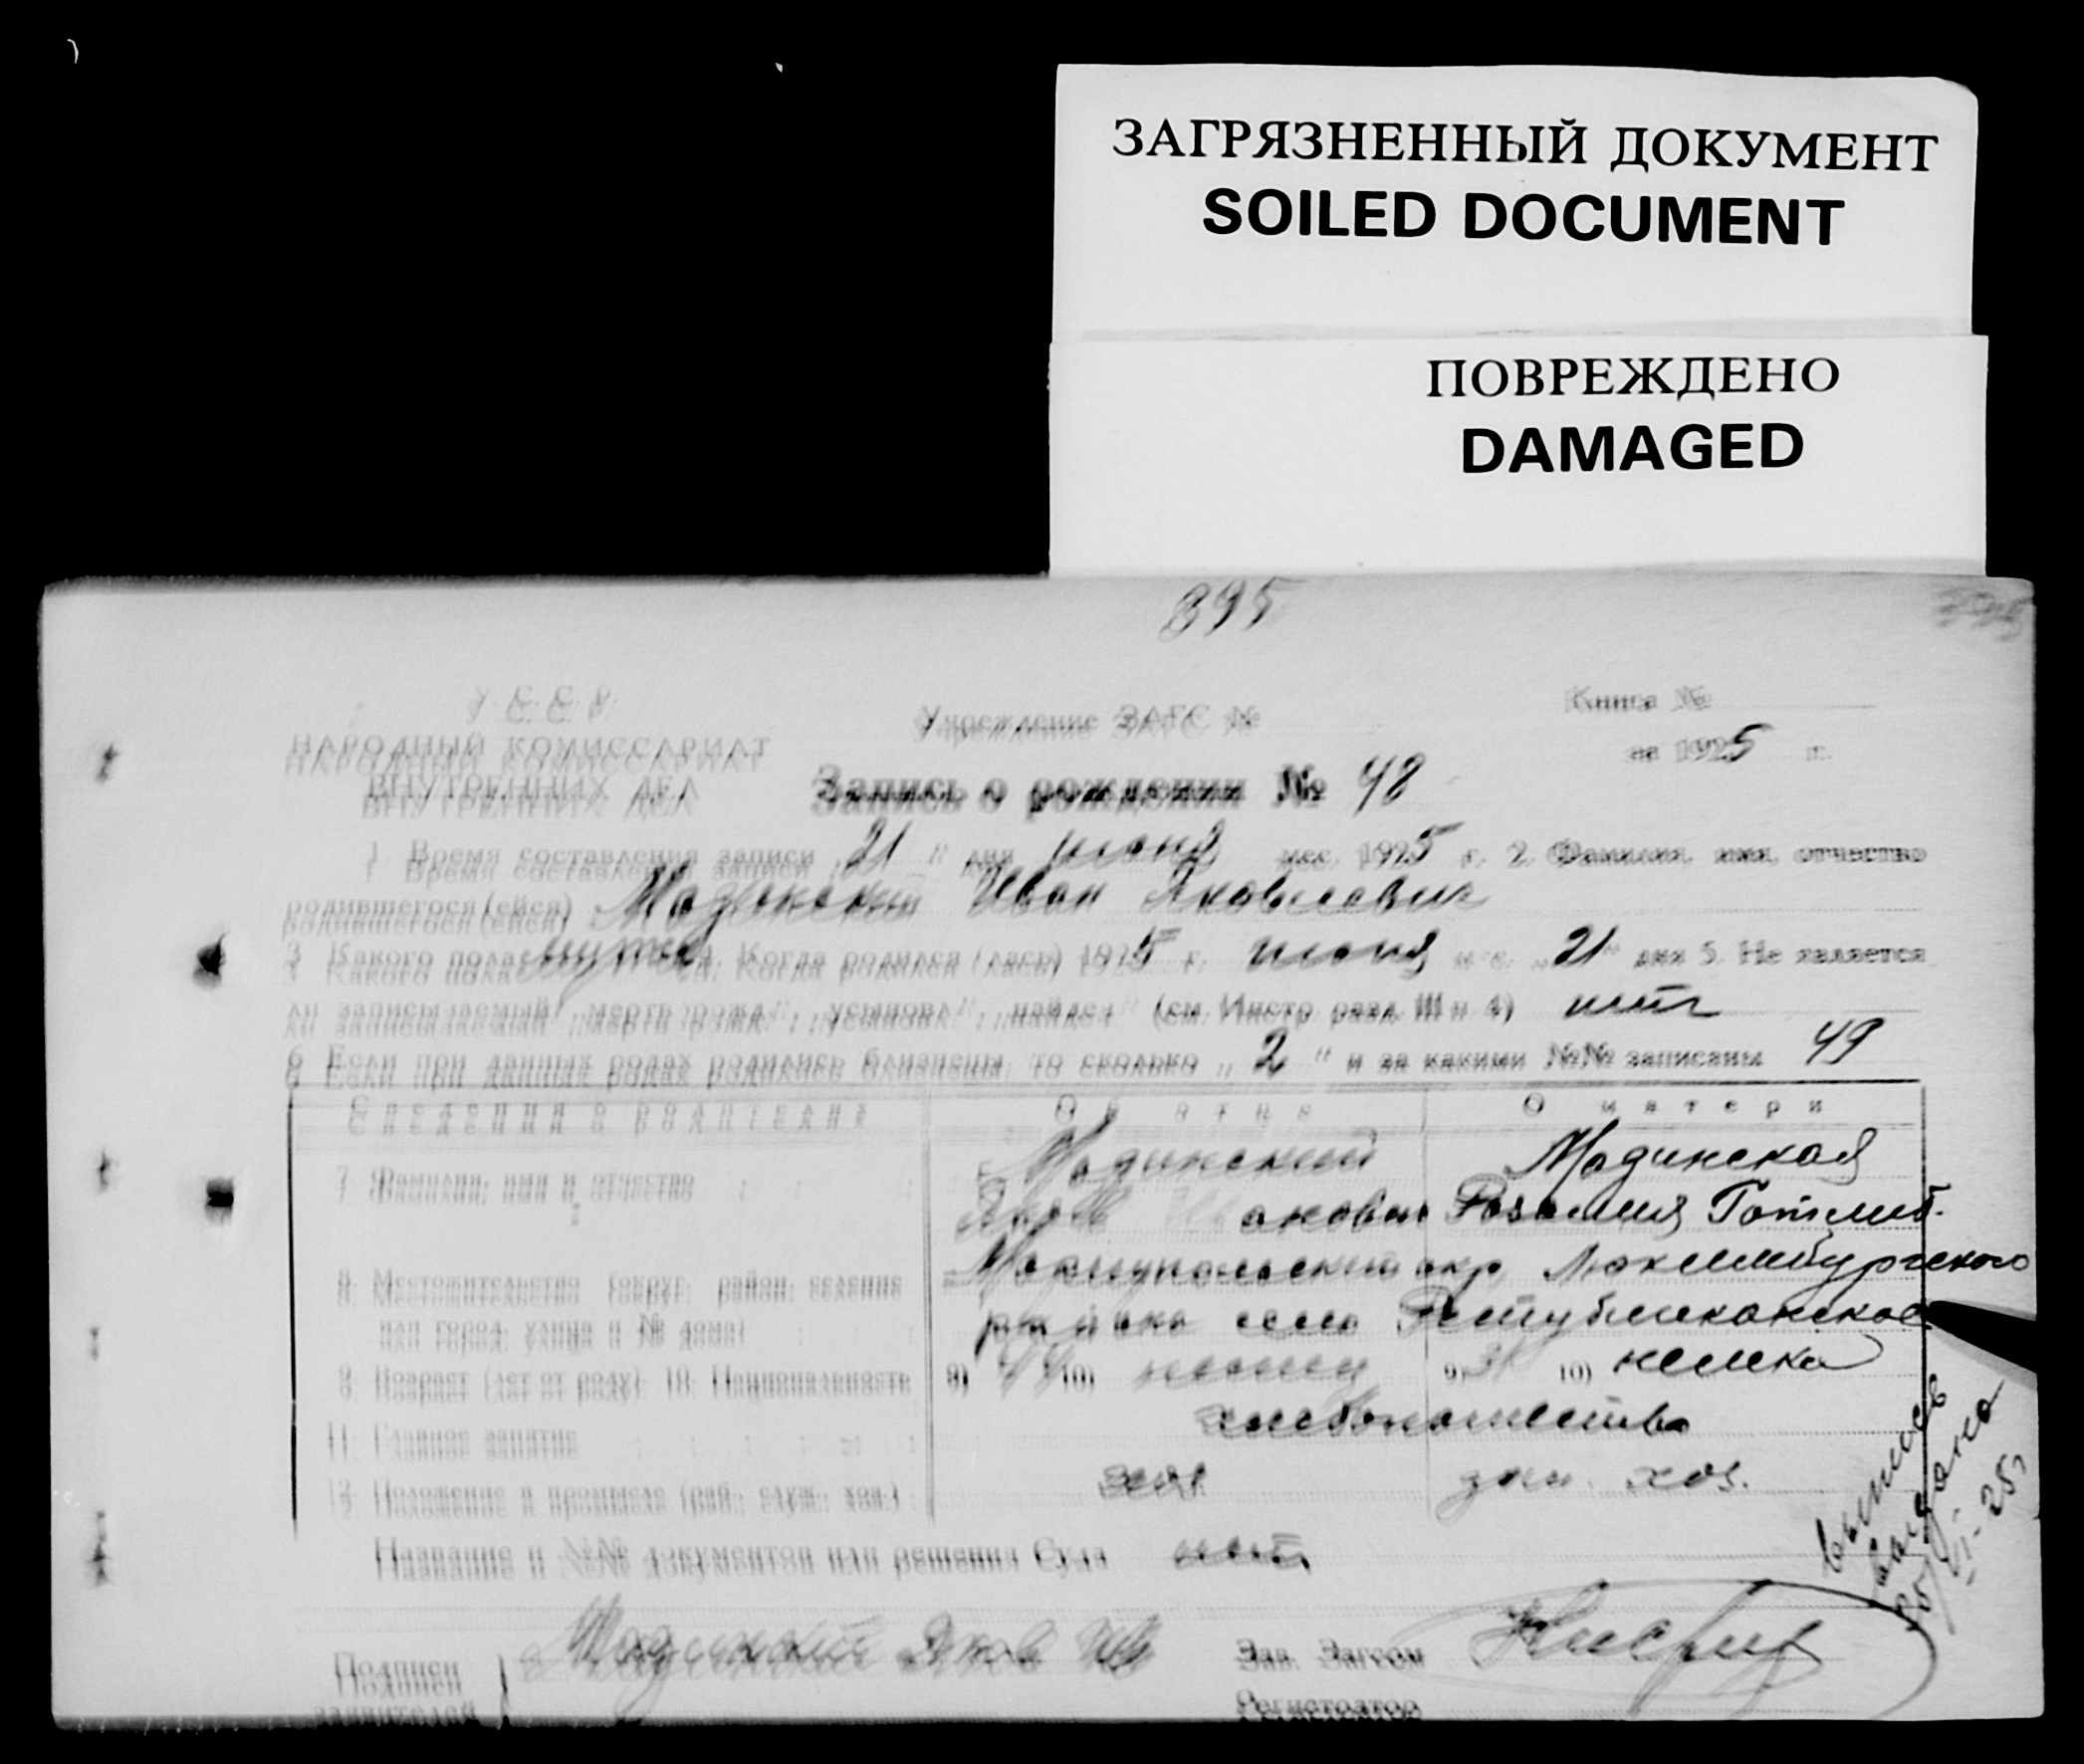 ЗАГРЯЗНЕННЫЙ ДОКУМЕНТ
SOILED DOCUMENT
ПОВРЕЖДЕНО
DAMAGED
395
У С С Р
НАРОДНЫЙ КОМИССАРИАТ
ВНУТРЕННИХ ДЕЛ
Учреждение ЗАГС №
Книга №
за 1925 г.
Запись о рождении № 48
1 Время составления записи „21" дня июня мес. 1925 г. 2. Фамилия, имя, отчество
родившегося (ейся) Мадинский Иван Яковлевич
3 Какого пола Когда родился (лась) 1925 г. июня м-с. „21" дня 5. Не является
ли записываемый „мертворожд", „усыновл", „найден" (см. Инстр разд. III п 4) нет
6 Если при данных родах родились близнецы, то сколько „2" и за какими №№ записаны 49
Сведения о родителях
Об отце
О матери
7. Фамилия, имя и отчество
Мадинский
Яков Иванович
Мадинская
Розалия Готлиб.
8. Местожительство (округ, район, селение
или город, улица и № дома)
Мариупольский окр Люксембургского
района село Републиканское
9. Возраст (лет от роду) 10. Национальность
9) 10) немец
9) 31 10) немка
11. Главное занятие
хлебопашество
12. Положение в промысле (раб., служ., хоз.)
хоз.
дом. хоз.
Название и №№ документов или решения Суда нет
выпись
выдана
25/VI-25г
Подписи
заявителей
Мадинский Яков Ив
Зав. Загсом
Регистратор